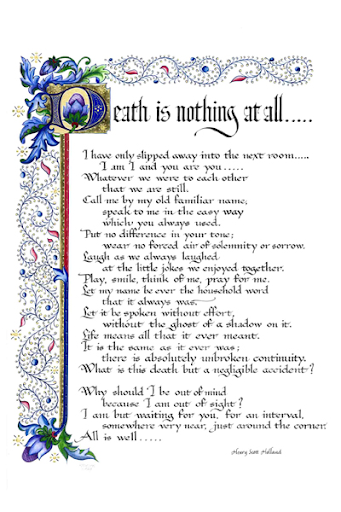 Death is nothing at all.....
I have only slipped away into the next room.....
I am I and you are you.....
Whatever we were to each other
that we are still.
Call me by my old familiar name;
speak to me in the easy way
which you always used.
Put no difference in your tone;
wear no forced air of solemnity or sorrow.
Laugh as we always laughed
at the little jokes we enjoyed together.
Play, smile, think of me, pray for me.
Let my name be ever the household word
that it always was.
Let it be spoken without effort,
without the ghost of a shadow on it.
Life means all that it ever meant.
It is the same as it ever was;
there is absolutely unbroken continuity.
What is this death but a negligible accident?
Why should I be out of mind
because I am out of sight?
I am but waiting for you, for an interval,
somewhere very near, just around the corner.
All is well.....
Henry Scott Holland